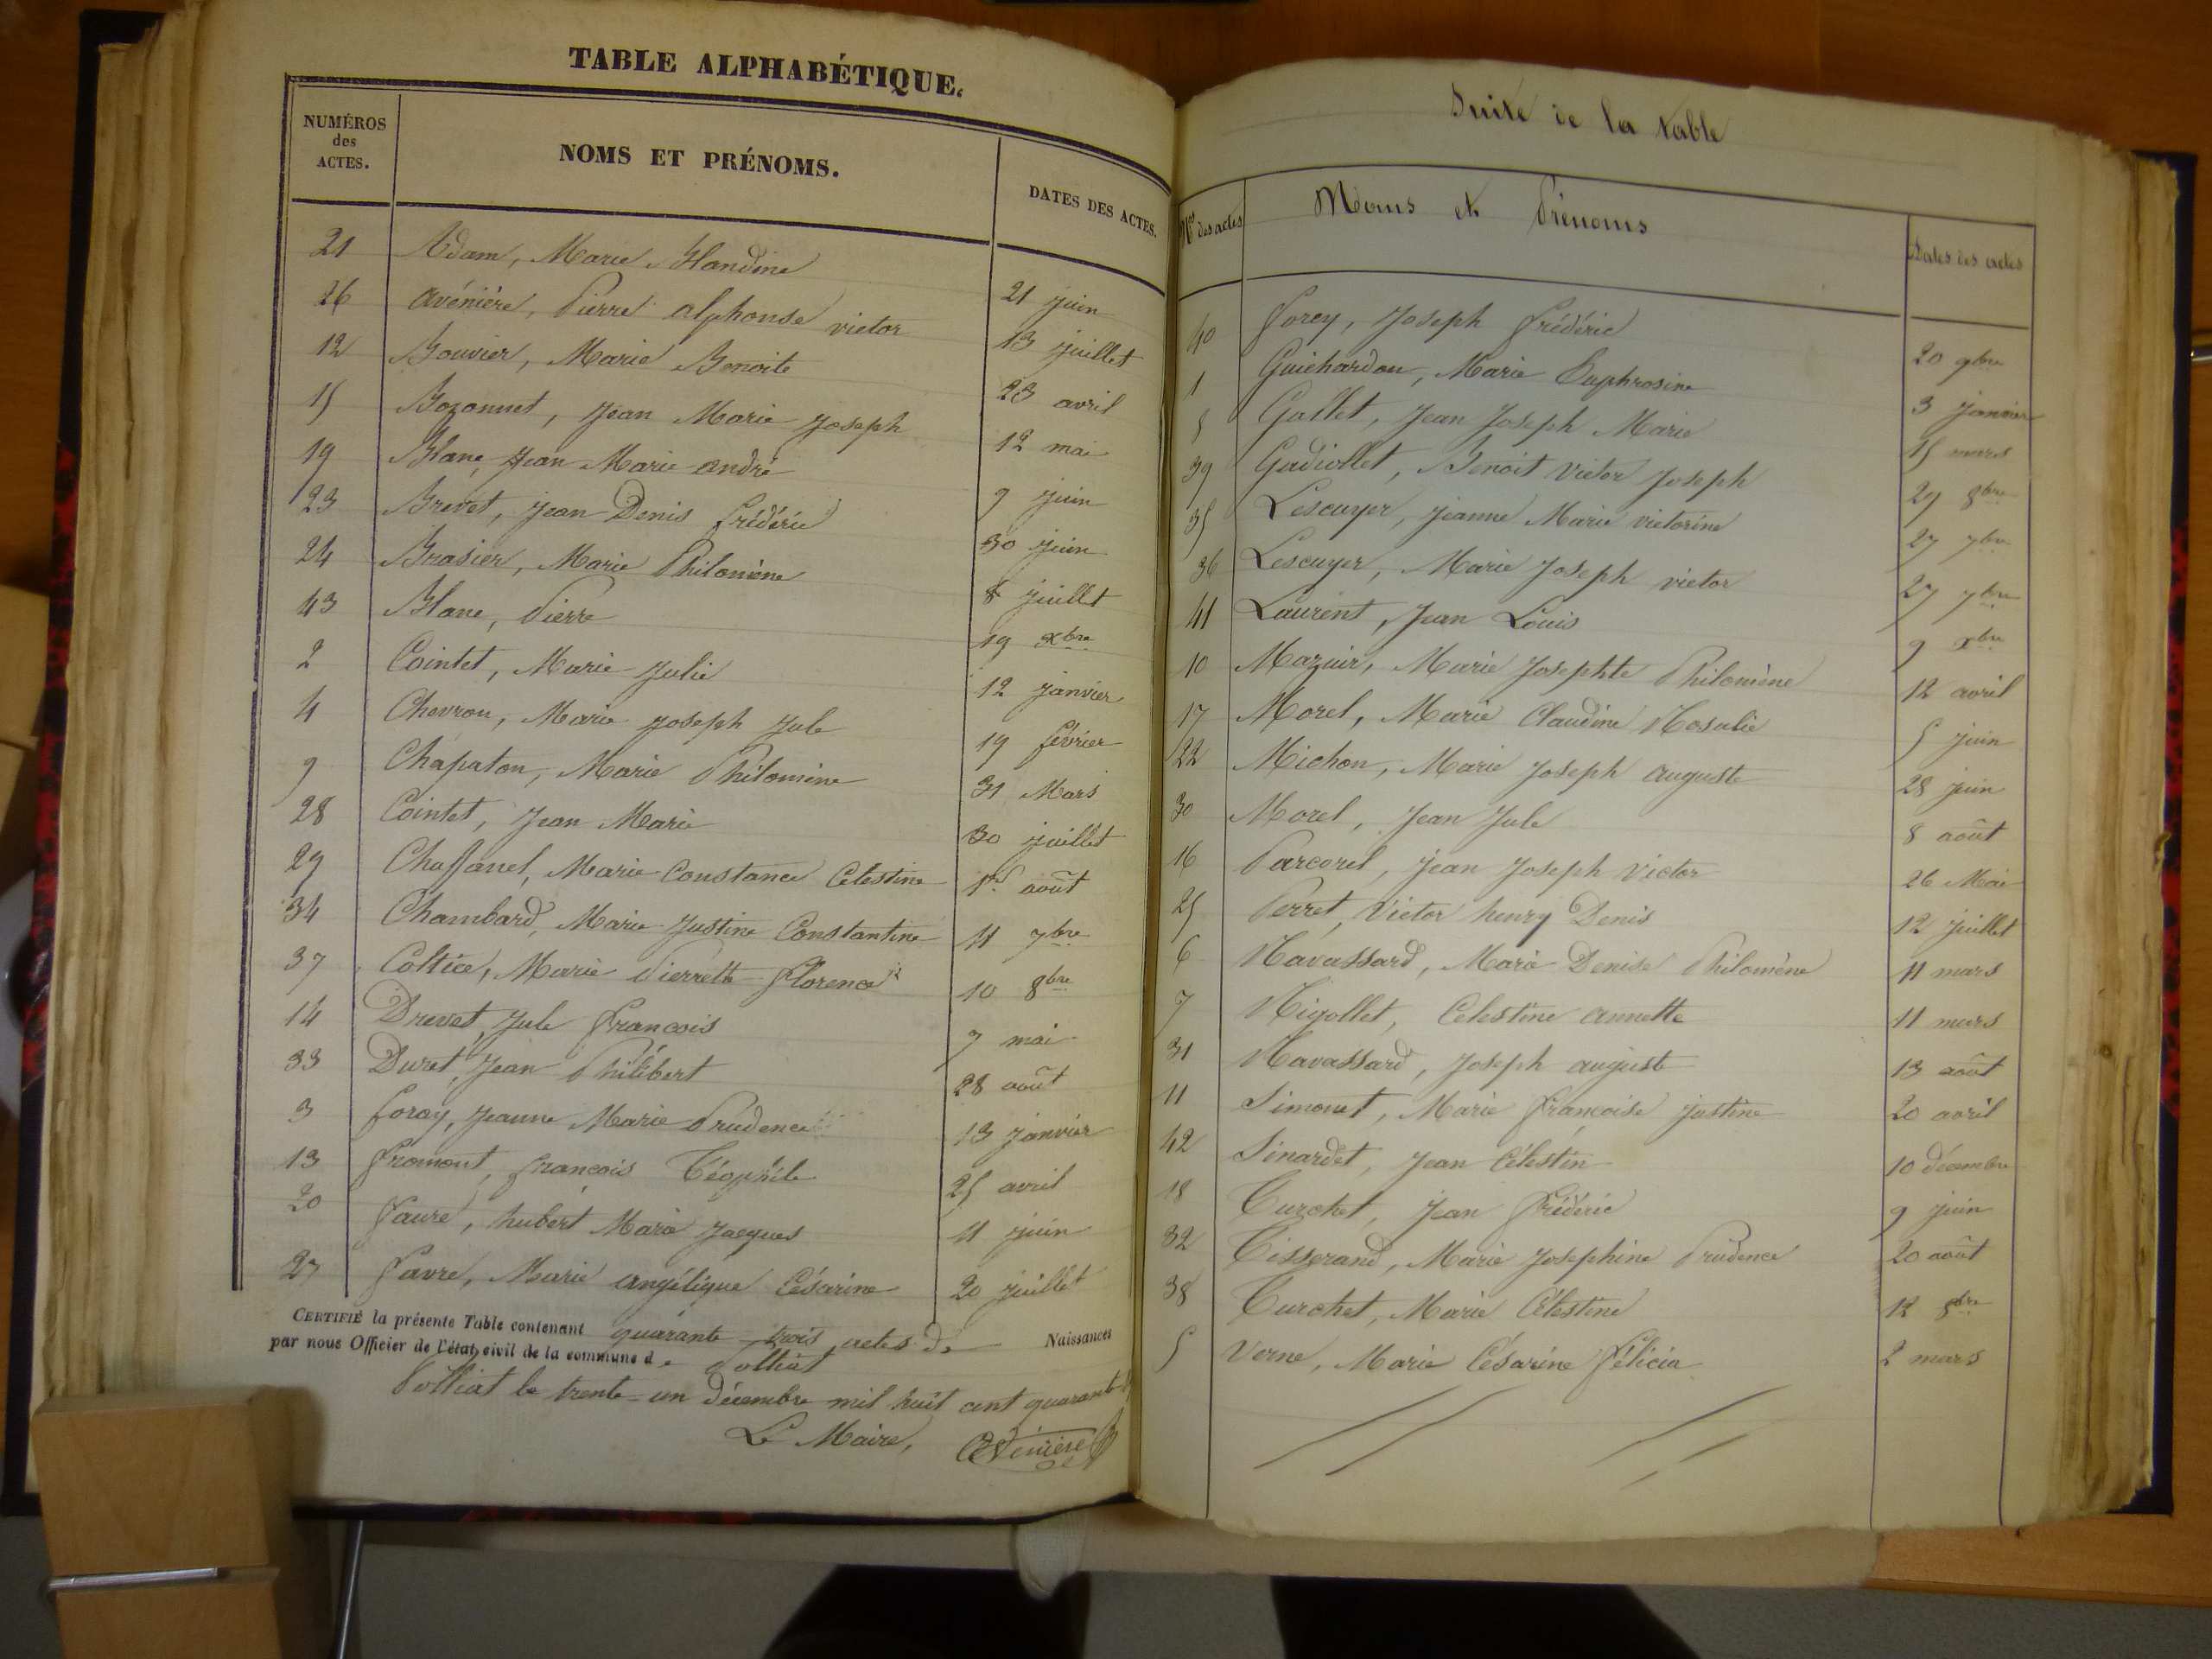 TABLE ALPHABÉTIQUE.
NUMÉROS des ACTES. NOMS ET PRÉNOMS. DATES DES ACTES.
21 Adam, Marie Blandine 21 juin
26 avénière, Pierre alphonse victor 13 juillet
12 Bouvier, Marie Benoite 23 avril
15 Bozonnet, Jean Marie Joseph 12 mai
19 Blanc, Jean Marie andré 9 juin
23 Brevet, Jean Denis frédéric 30 juin
24 Brasier, Marie Philomène 8 juillet
43 Blanc, Pierre 19 xbre
2 Cointet, Marie Julie 12 janvier
4 Chevron, Marie Joseph Jule 19 février
9 Chapaton, Marie Philomène 31 Mars
28 Cointet, Jean Marie 30 juillet
29 Chaffanel, Marie Constance Célestine 1er août
34 Chambard, Marie Justine Constantine 11 7bre
37 Coltice, Marie Pierrette Florence 10 8bre
14 Drevet, Jule françois 7 mai
33 Duret, Jean Philibert 28 août
3 foray, Jeanne Marie Prudence 13 janvier
13 fromont, françois Téophile 25 avril
20 faure, hubert Marie Jacques 11 juin
27 favre, Marie angélique Césarine 20 juillet
CERTIFIÉ la présente Table contenant quarante trois actes de Naissances
par nous Officier de l'état civil de la commune de Polliat
Polliat le trente-un décembre mil huit cent quarante
Le Maire, avénière
Suite de la table
Nos des actes Noms et Prénoms Dates des actes
40 forey, Joseph frédéric 20 9bre
1 Guichardon, Marie Euphrosine 3 janvier
8 Gallet, Jean Joseph Marie 15 mars
39 Gadiollet, Benoit victor Joseph 29 8bre
35 Lescuyer, jeanne Marie victorine 27 7bre
36 Lescuyer, Marie Joseph victor 27 7bre
41 Laurent, Jean Louis 9 xbre
10 Mazuir, Marie Josephte Philomène 12 avril
17 Morel, Marie Claudine Rosalie 5 juin
22 Michon, Marie Joseph auguste 28 juin
30 Morel, Jean Jule 8 août
16 Parcorel, jean Joseph Victor 26 Mai
25 Perret, Victor henry Denis 12 juillet
6 Ravassard, Marie Denise Philomène 11 mars
7 Rigollet, Célestine annette 11 mars
31 Ravassard, Joseph auguste 13 août
11 Simonet, Marie françoise justine 20 avril
42 Sinardet, Jean Célestin 10 décembre
18 Turchet, Jean frédéric 9 juin
32 Tisserand, Marie Josephine Prudence 20 août
38 Turchet, Marie Célestine 12 8bre
5 Verne, Marie Césarine Félicia 2 mars